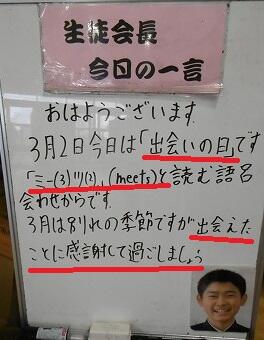 生徒会長
今日の一言
おはようございます
3月2日今日は「出会いの日」です
「ミー(3)ツ(2)」(meets)と読む語呂
合わせからです。
3月は別れの季節ですが出会えた
ことに感謝して過ごしましょう